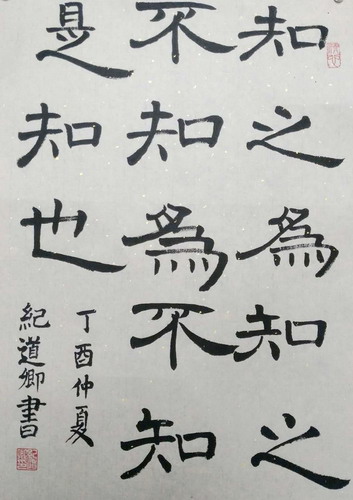 知之為知之
不知為不知
是知也
丁酉仲夏
紀道卿書